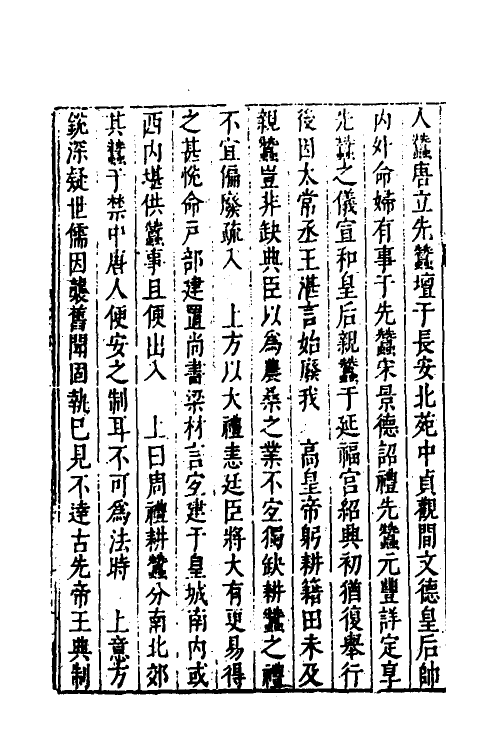 人蠶唐立先蠶壇于長安北苑中貞觀間文德皇后帥
内外命婦有事于先蠶宋景德詔禮先蠶元豐詳定享
先蠶之儀宣和皇后親蠶于延福宮紹興初猶復舉行
後因太常丞王湛言始廢我　高皇帝躬耕籍田未及
親蠶豈非缺典臣以爲農桑之業不宜獨缺耕蠶之禮
不宜偏廢疏入　上方以大禮恚廷臣將大有更易得
之甚悅命戶部建置尚書梁材言宜建于皇城南内或
西内堪供蠶事且便出入　上曰周禮耕蠶分南北郊
其蠶于禁中唐人便安之制耳不可爲法時　上意方
銳深疑世儒因襲舊聞固執已見不達古先帝王典制